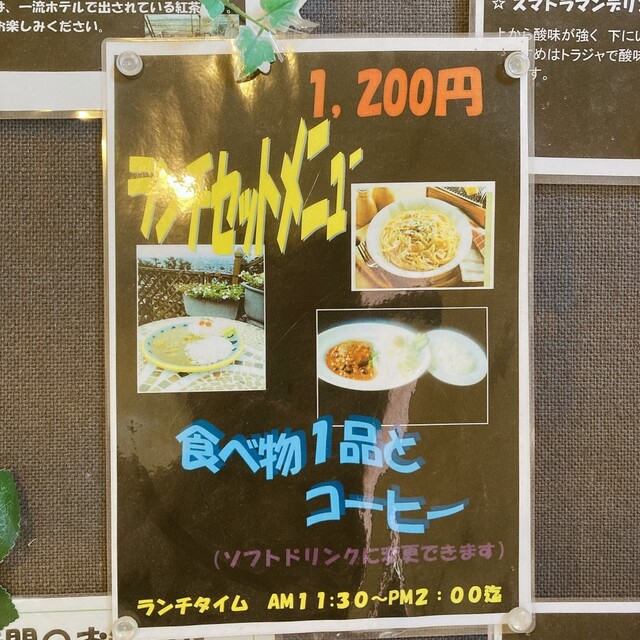 は、一流ホテルで出されている紅茶
お楽しみください。
☆ スマトラマンデリン
上から酸味が強く 下に
めはトラジャで酸味
1,200円
ランチセットメニュー
食べ物1品と
コーヒー
(ソフトドリンクに変更できます)
ランチタイム AM11:30～PM2:00迄